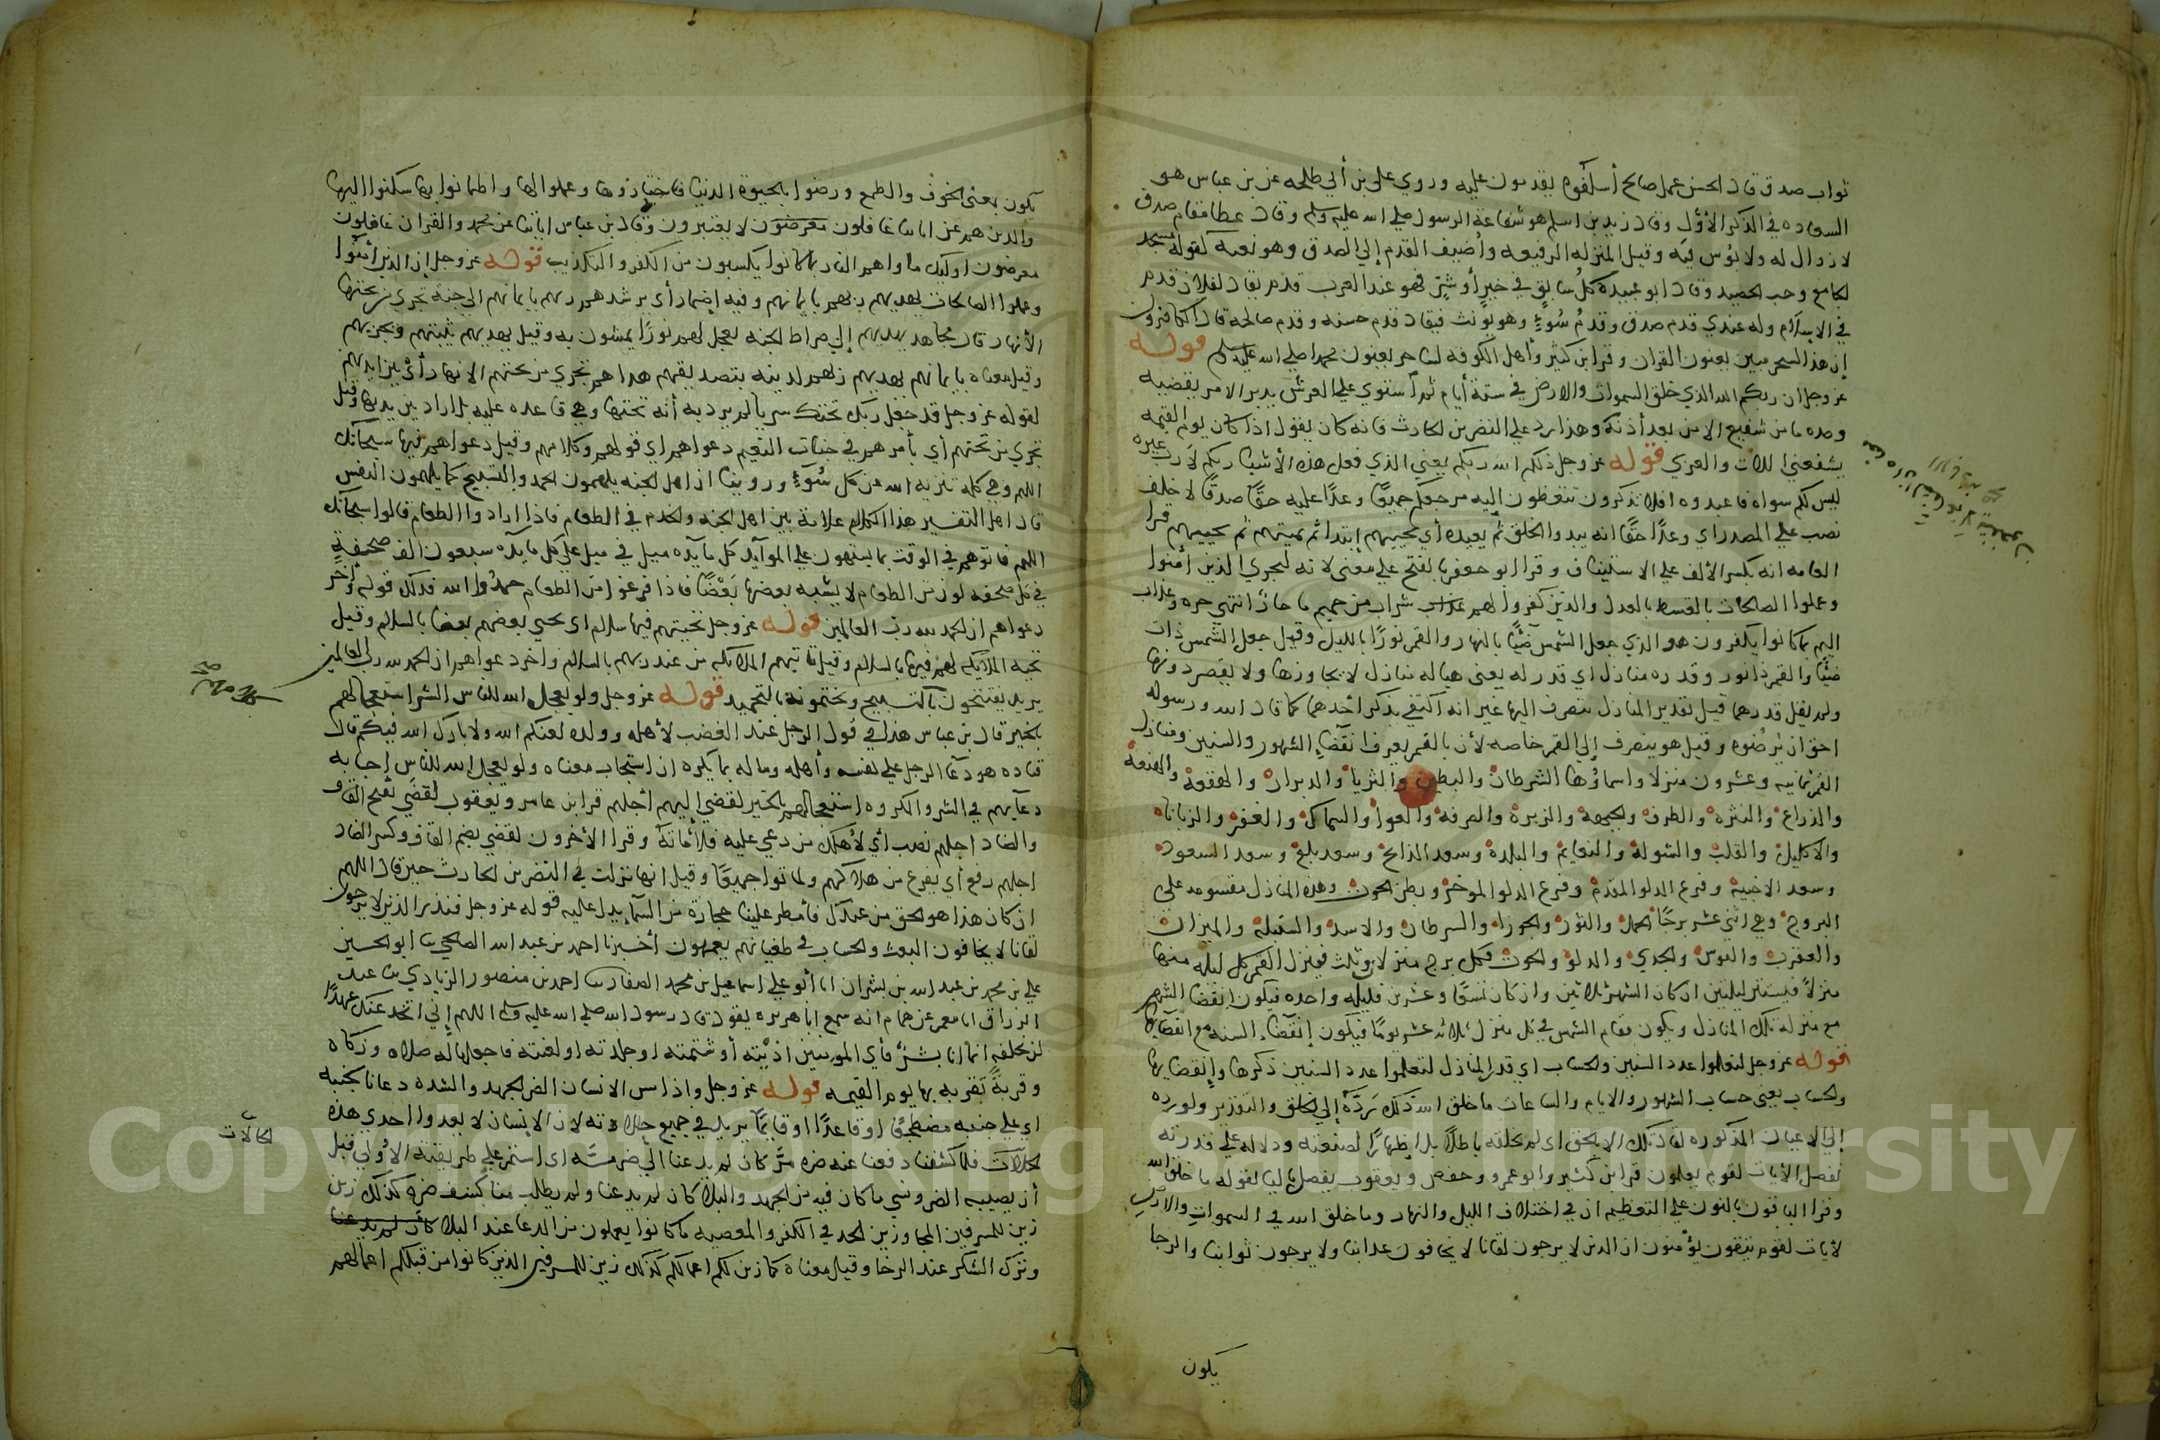 ثواب صدق قال الحسن عمل صالح أسلفوه يقدمون عليه وروي علي بن أبي طلحه عن بن عباس هو
السعاده في الذكر الأول وقال زيد بن اسلم هو شفاعة الرسول صلي الله عليه وسلم وقال عطا مقام صدق
لا زوال له ولا بؤس فيه وقيل المنزله الرفيعه وأضيف القدم إلي الصدق وهو نعته كقوله مسجد
الجامع وحب الحصيد وقال ابو عبيدة كل سابق في خير أو شر فهو عند العرب قدم يقال لفلان قدم
في الاسلام وله عندي قدم صدق وقدم سوء وهو يونث فيقال قدم حسنه وقدم صالحه قال الكافرون
إن هذا لسحر مبين يعنون القران وقرا ابن كثير وأهل الكوفه لساحر يعنون محمدا صلي الله عليه وسلم قوله
عز وجل ان ربكم الله الذي خلق السموات والارض في ستة أيام ثم استوي علي العرش يدبر الامر يقضيه
وحده ما من شفيع الا من بعد أذنه وهذا رد علي النضر بن الحارث فانه كان يقول اذا كان يوم القيمه
يشفعني اللات والعزي قوله عز وجل ذلكم الله ربكم يعني الذي فعل هذه الأشيا ربكم لا رب غيره
ليس لكم سواه فاعبدوه افلا تذكرون تتعظون إليه مرجعكم جميعا وعدا عليه حقا صدقا لا خلف
نصب علي المصدر اي وعدا حقا انه يبدوا الخلق ثم يعيده أي يحييهم إبتدا ثم يميتهم ثم يحييهم قرا
العامه انه بكسر الألف علي الاستيناف وقرا ابو جعفر بالفتح علي معني لانه ليجزي الذين أمنوا
وعملوا الصالحات بالقسط بالعدل والذين كفروا لهم عذاب شراب من حميم ما حار انتهي حره وعذاب
اليم بما كانوا يكفرون هو الذي جعل الشمس ضيا بالنهار والقمر نورا بالليل وقيل جعل الشمس ذات
ضيا والقمر ذا نور وقدره منازل اي قدر له يعني هيا له منازل لا يجاوزها ولا يقصر دونها
ولم يقل قدرهما قيل تقدير المنازل ينصرف اليها غير انه اكتفي بذكر أحدهما كما قال الله ورسوله
احق ان يرضوه وقيل هو ينصرف إلي القمر خاصه لأن بالقمر يعرف انقضا الشهور والسنين ومنازل
القمر ثمانيه وعشرون منزلا واسماؤها الشرطان والبطين والثريا والدبران والهقعة والهنعة
والذراع والنثرة والطرف والجبهة والزبرة والصرفة والعوا والسماك والغفر والزبانا
والاكليل والقلب والشولة والنعايم والبلدة وسعد الذابح وسعد بلع وسعد السعود
وسعد الاخبية وفرع الدلو المقدم وفرع الدلو الموخر وبطن الحوت وهذه المنازل مقسومه علي
البروج وهي اثني عشر برجا الحمل والثور والجوزا والسرطان والاسد والسنبلة والميزان
والعقرب والقوس والجدي والدلو والحوت فلكل برج منزلان وثلث فينزل القمر كل ليلة منها
منزلا فيستتر ليلتين ان كان الشهر ثلاثين وان كان تسعا وعشرين فليلة واحده فيكون إنقضا الشهر
مع منزله تلك المنازل ويكون مقام الشمس في كل منزل ثلاثه عشر يوما فيكون إنقضاء السنه مع انقضايها
قوله عز وجل لتعلموا عدد السنين والحساب اي قدر المنازل لتعلموا عدد السنين ذكرها وإنقضايها
والحساب يعني حساب الشهور والايام والساعات ما خلق الله ذلك رده إلي الخلق والتقدير ولو رده
إلي الاعيان المذكوره لقال تلك الا بالحق اي لم يخلقه باطلا بل إظهارا لصنعته ودلالة علي قدرته
نفصل الأيات لقوم يعلمون قرا بن كثير وابو عمرو وحفص ويعقوب يفصل باليا لقوله ما خلق الله
وقرا الباقون بالنون علي التعظيم ان في اختلاف الليل والنهار وما خلق الله في السموات والارض
لأيات لقوم يتقون يؤمنون ان الذين لا يرجون لقانا لا يخافون عذابنا ولا يرجون ثوابنا والرجا
يكون
يكون بمعني الخوف والطمع ورضوا بالحيوة الدنيا فاختاروها وعملوا لها واطمانوا بها سكنوا اليها
والذين هم عن اياتنا غافلون معرضون لا يعتبرون وقال بن عباس اياتنا عن محمد والقران غافلون
معرضون اوليك ماواهم النار بما كانوا يكسبون من الكفر والتكذيب قوله عز وجل إن الذين أمنوا
وعملوا الصالحات يهديهم ربهم بايمانهم وفيه إضمار أي يرشدهم ربهم بايمانهم الي جنة تجري من تحتها
الأنهار قال مجاهد يهديهم إلي صراط الجنه يجعل لهم نورا يمشون به وقيل يهديهم يثيبهم ويجزيهم
وقيل معناه بايمانهم يهديهم ربهم لدينه بتصديقهم هداهم تجري من تحتهم الانهار أي بين ايديهم
لقوله عز وجل قد جعل ربك تحتك سريا لم يرد به أنه تحتها وهي قاعده عليه بل اراد بين يديها وقيل
تجري من تحتهم أي بأمرهم في جنات النعيم دعواهم اي قولهم وكلامهم وقيل دعواهم فيها سبحانك
اللهم وهي كلمه تنزيه الله من كل سوء وروينا ان اهل الجنه يلهمون الحمد والتسبيح كما يلهمون النفس
قال اهل التفسير هذا الكلام علامة بين اهل الجنه والخدم في الطعام فاذا ارادوا الطعام قالوا سبحانك
اللهم فاتوهم في الوقت بما يشتهون علي الموآيد كل مايده ميل في ميل علي كل مايده سبعون الف صحفة
في كل صحفه لون من الطعام لا يشبه بعضها بعضا فاذا فرغوا من الطعام حمدوا الله فذلك قوله واخر
دعواهم ان الحمد لله رب العالمين قوله عز وجل تحيتهم فيها سلام اي يحيي بعضهم بعضا بالسلام وقيل
تحية الملايكه لهم فيها بالسلام وقيل تاتيهم الملايكه من عند ربهم بالسلام واخر دعواهم ان الحمد لله رب العالمين
يريد يفتتحون بالتسبيح ويختمونه بالتحميد قوله عز وجل ولو يعجل الله للناس الشر استعجالهم
بالخير قال بن عباس هذا في قول الرجل عند الغضب لأهله وولده لعنكم الله ولا بارك الله فيكم قال
قتاده هو دعا الرجل علي نفسه وأهله وماله بما يكره ان استجاب معناه ولو يعجل الله للناس إجابه
دعآيهم في الشر والمكروه استعجالهم بالخير لقضي إليهم أجلهم قرا بن عامر ويعقوب لقضي بفتح القاف
والضاد اجلهم نصب أي لأهلك من دعي عليه فلا أماته وقرا الأخرون لقضي بضم القاف وكسر الضاد
اجلهم رفع أي يفرغ من هلاكهم ولماتوا جميعا وقيل انها نزلت في النضر بن الحارث حين قال اللهم
ان كان هذا هو الحق من عندك فأمطر علينا حجارة من السمآ يدل عليه قوله عز وجل فنذر الذين لا يرجون
لقانا لا يخافون البعث والحساب في طغيانهم يعمهون أخبرنا احمد بن عبد الله الصالحي انا ابو الحسين
علي بن محمد بن عبد الله بن بشران انا أبو علي اسماعيل بن محمد الصفار نا احمد بن منصور الزيادي نا عبد
الرزاق انا معمر عن همام انه سمع ابا هريره يقول قال رسول الله صلي الله عليه وسلم اللهم إني اتخذ عندك عهدا
لن تخلفه انما انا بشر فأي المومنين اذيته أو شتمته او جلدته او لعنته فاجعلها له صلاه وزكاه
وقربة تقربه بها يوم القيمه قوله عز وجل واذا مس الانسان الضر الجهد والشده دعانا لجنبه
اي علي جنبه مضطجعا او قاعدا او قايما يريد في جميع حالاته لان الإنسان لا يعدوا احدي هذه
الحالات فلما كشفنا دفعنا عنه ضره مر كان لم يدعنا الي ضر مسه اي استمر علي طريقته الأولي قبل
أن يصيبه الضر ونسي ما كان فيه من الجهد والبلا كان لم يدعنا ولم يطلب منا كشف ضره كذلك زين
زين للمسرفين المجاوزين الحد في الكفر والمعصيه ما كانوا يعملون من الدعا عند البلا كأن لم يدعنا
وترك الشكر عند الرخا وقيل معناه كما زين لكم اعمالكم كذلك زين للمسرفين الذين كانوا من قبلكم اعمالهم
الحالات
Copyright © King Saud University